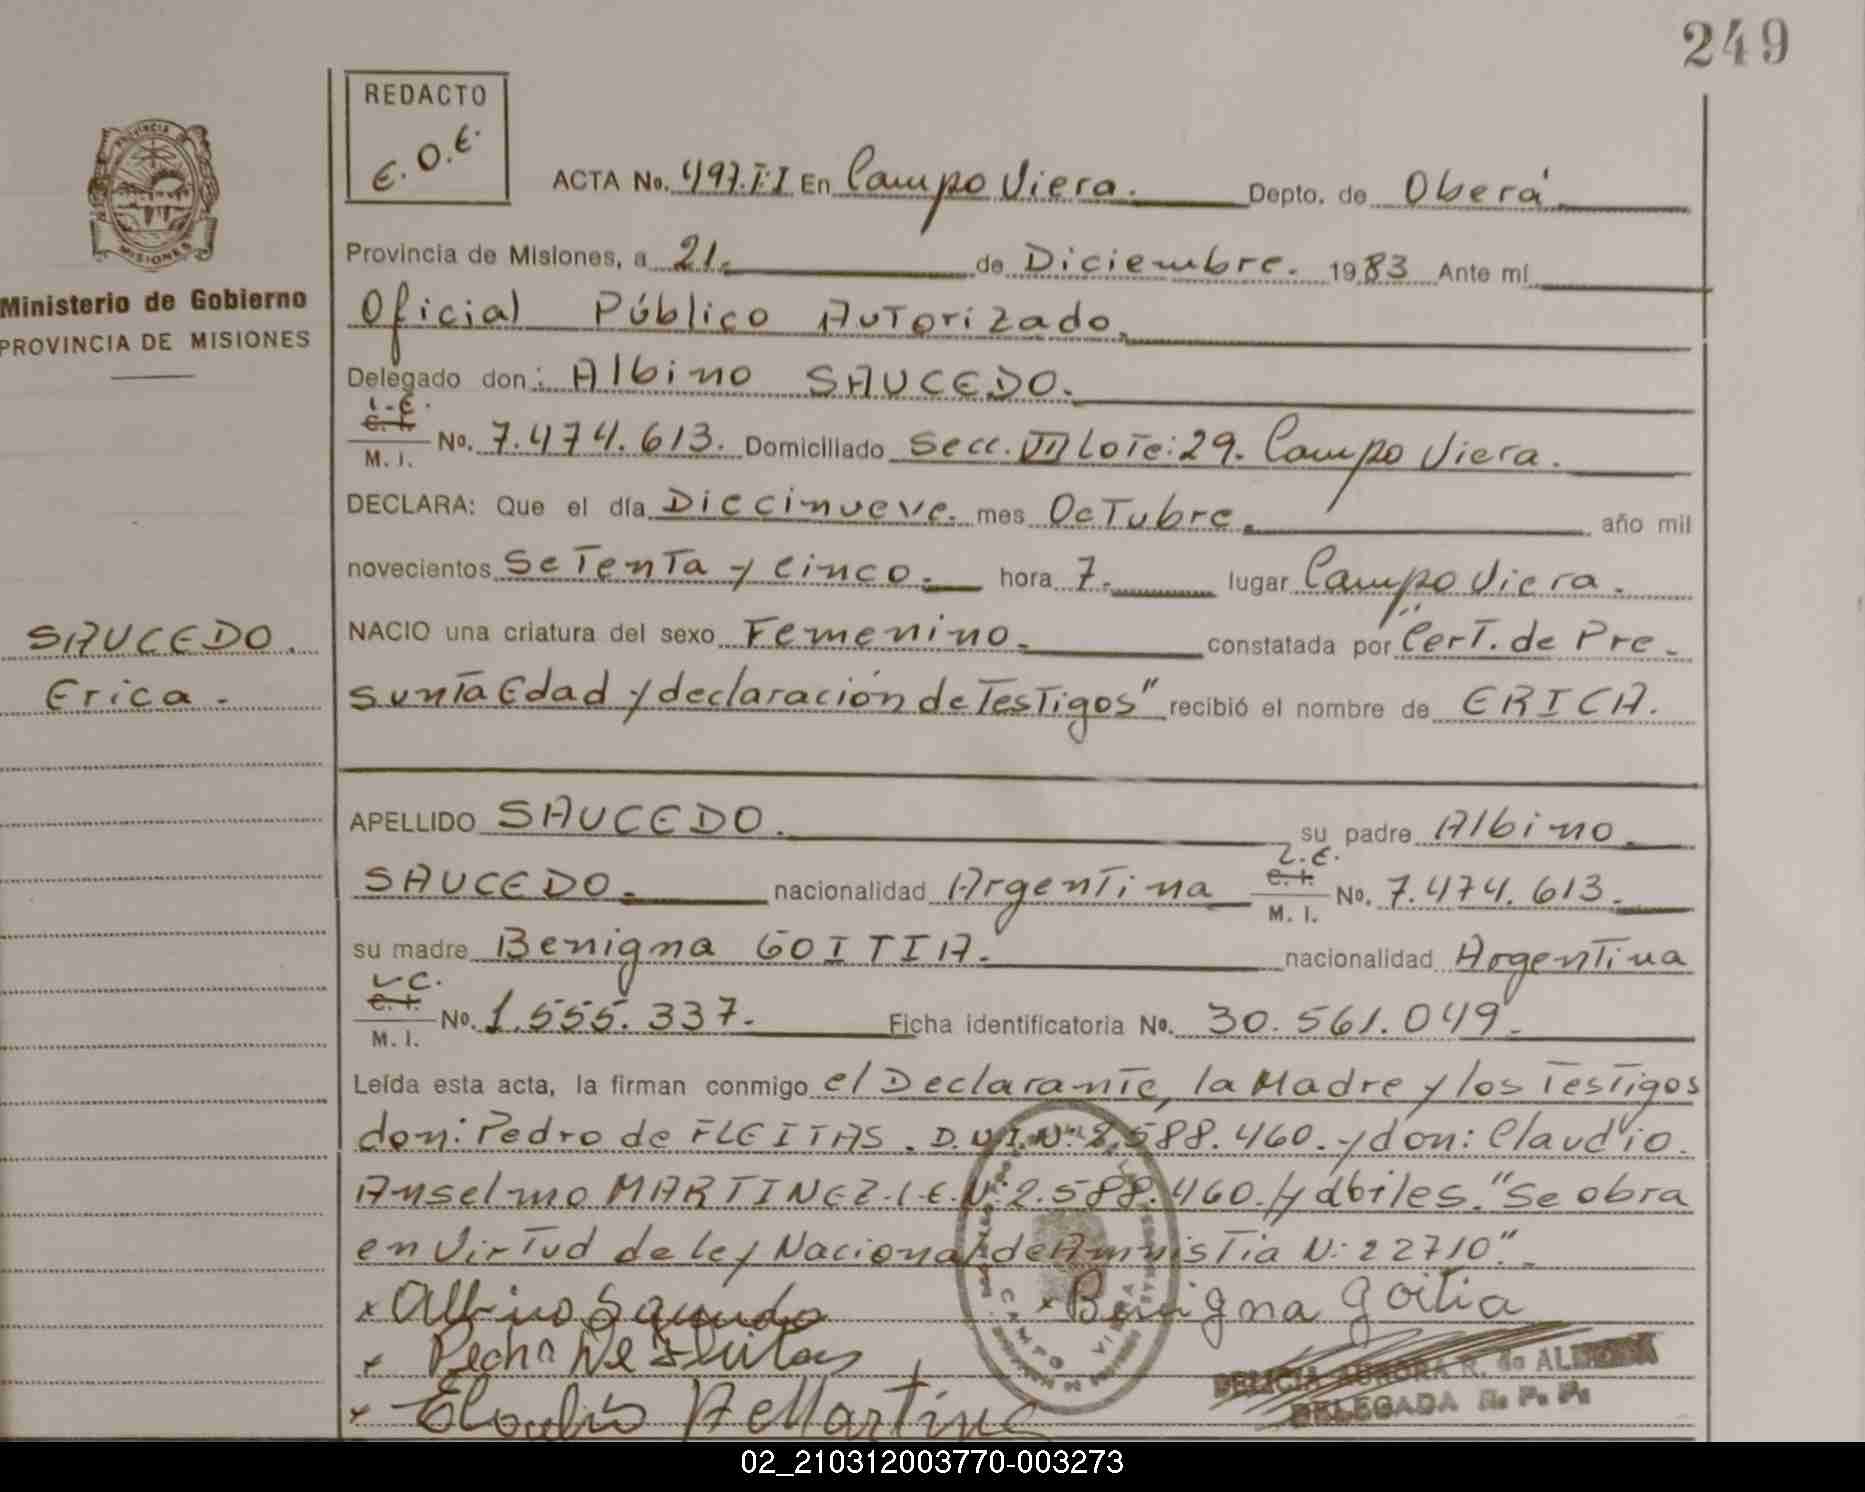 249
REDACTO
E.O.E.
PROVINCIA
MISIONES
ACTA No. 497.II En Campo Viera. Depto. de Oberá
Provincia de Misiones, a 21. de Diciembre. 1983 Ante mí
Ministerio de Gobierno
PROVINCIA DE MISIONES
Oficial Público Autorizado.
Delegado don: Albino SAUCEDO.
L.E.
C. I.
M. I. No. 7.474.613. Domiciliado Secc. VII Lote: 29. Campo Viera.
DECLARA: Que el día Diecinueve. mes Octubre. año mil
novecientos Setenta y cinco. hora 7. lugar Campo Viera.
SAUCEDO.
Erica.
NACIO una criatura del sexo Femenino. constatada por "Cert. de Pre-
sunta Edad y declaración de Testigos" recibió el nombre de ERICA.
APELLIDO SAUCEDO. su padre Albino
SAUCEDO. nacionalidad Argentina L.E. C. I. M. I. No. 7.474.613.
su madre Benigna GOITIA. nacionalidad Argentina
L.C.
C. I.
M. I. No. 1.555.337. Ficha identificatoria No. 30.561.049.
Leída esta acta, la firman conmigo el Declarante, la Madre y los Testigos
don: Pedro de FLEITAS. D.N.I.N: 2.588.460. y don: Claudio.
Anselmo MARTINEZ. L.E.N: 2.588.460. H dbiles. "Se obra
en Virtud de ley Nacional de Amnistia N: 22710".
x Albino Saucedo x Benigna Goitia
x Pedro De Fleitas
x Claudio De Martinez
CAMPO VIERA
DELICIA AURORA R. de
DELEGADA R. P. P.
02_210312003770-003273